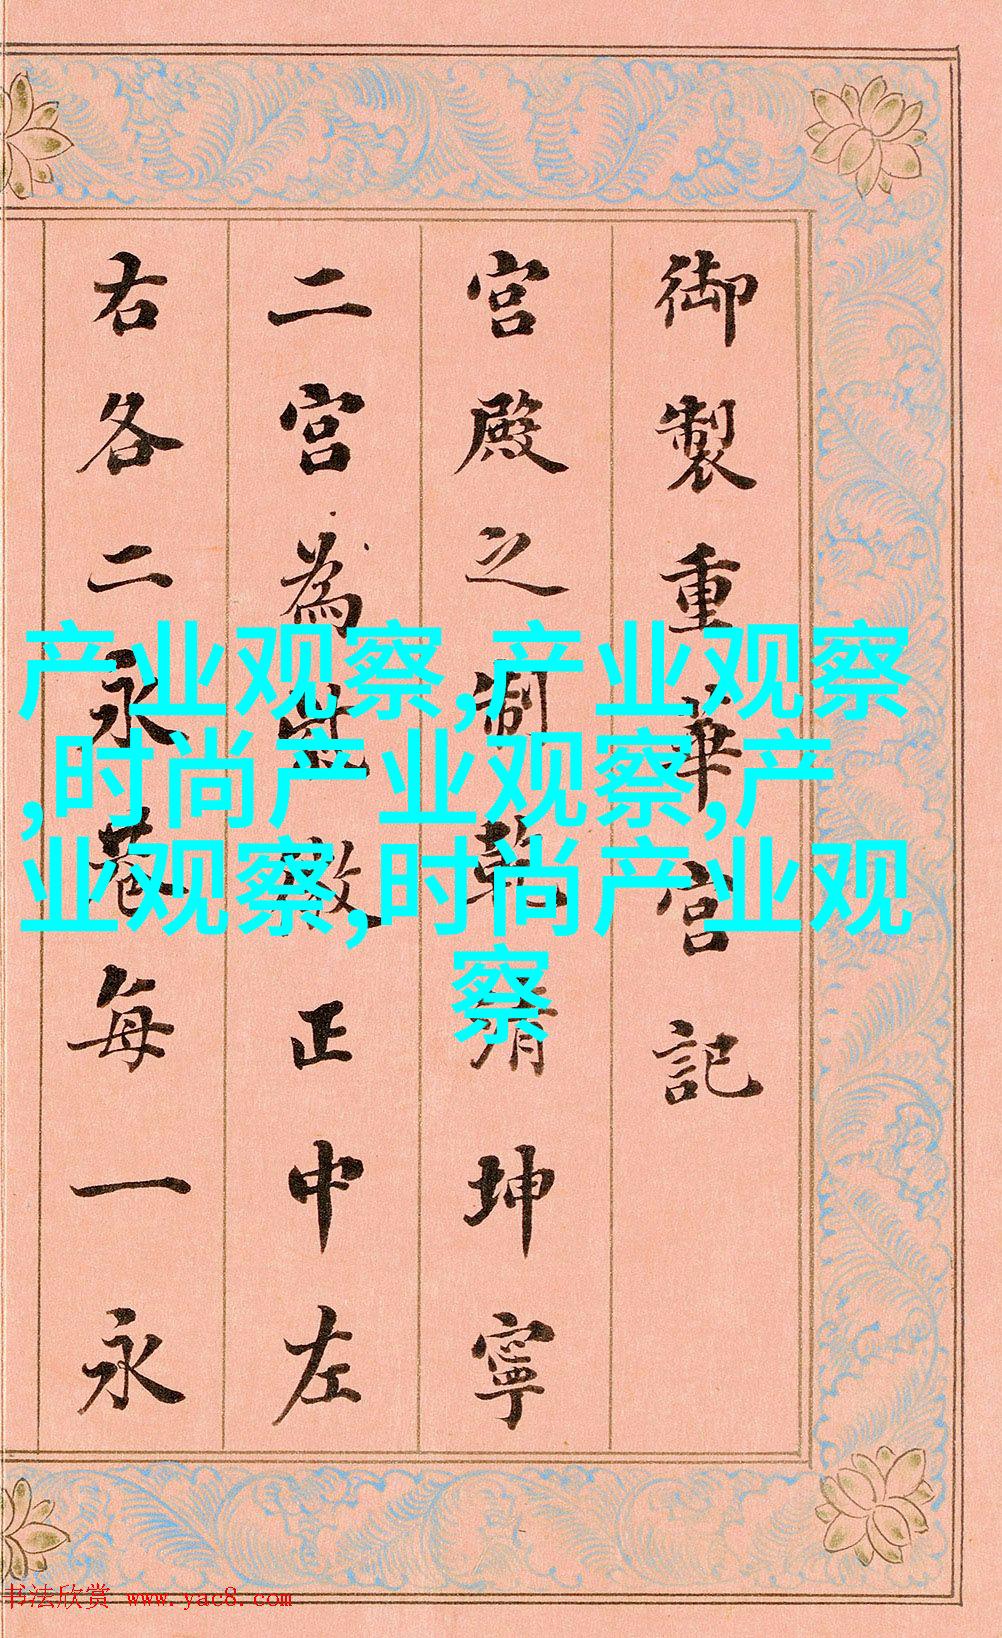 御製重華宮記
宮殿之制乾清坤寧
二宮為紫微正中左
右各二永巷每一永
产业观察,产业观察
,时尚产业观察,产
业观察,时尚产业观
察
书法欣赏 www.yac8.com